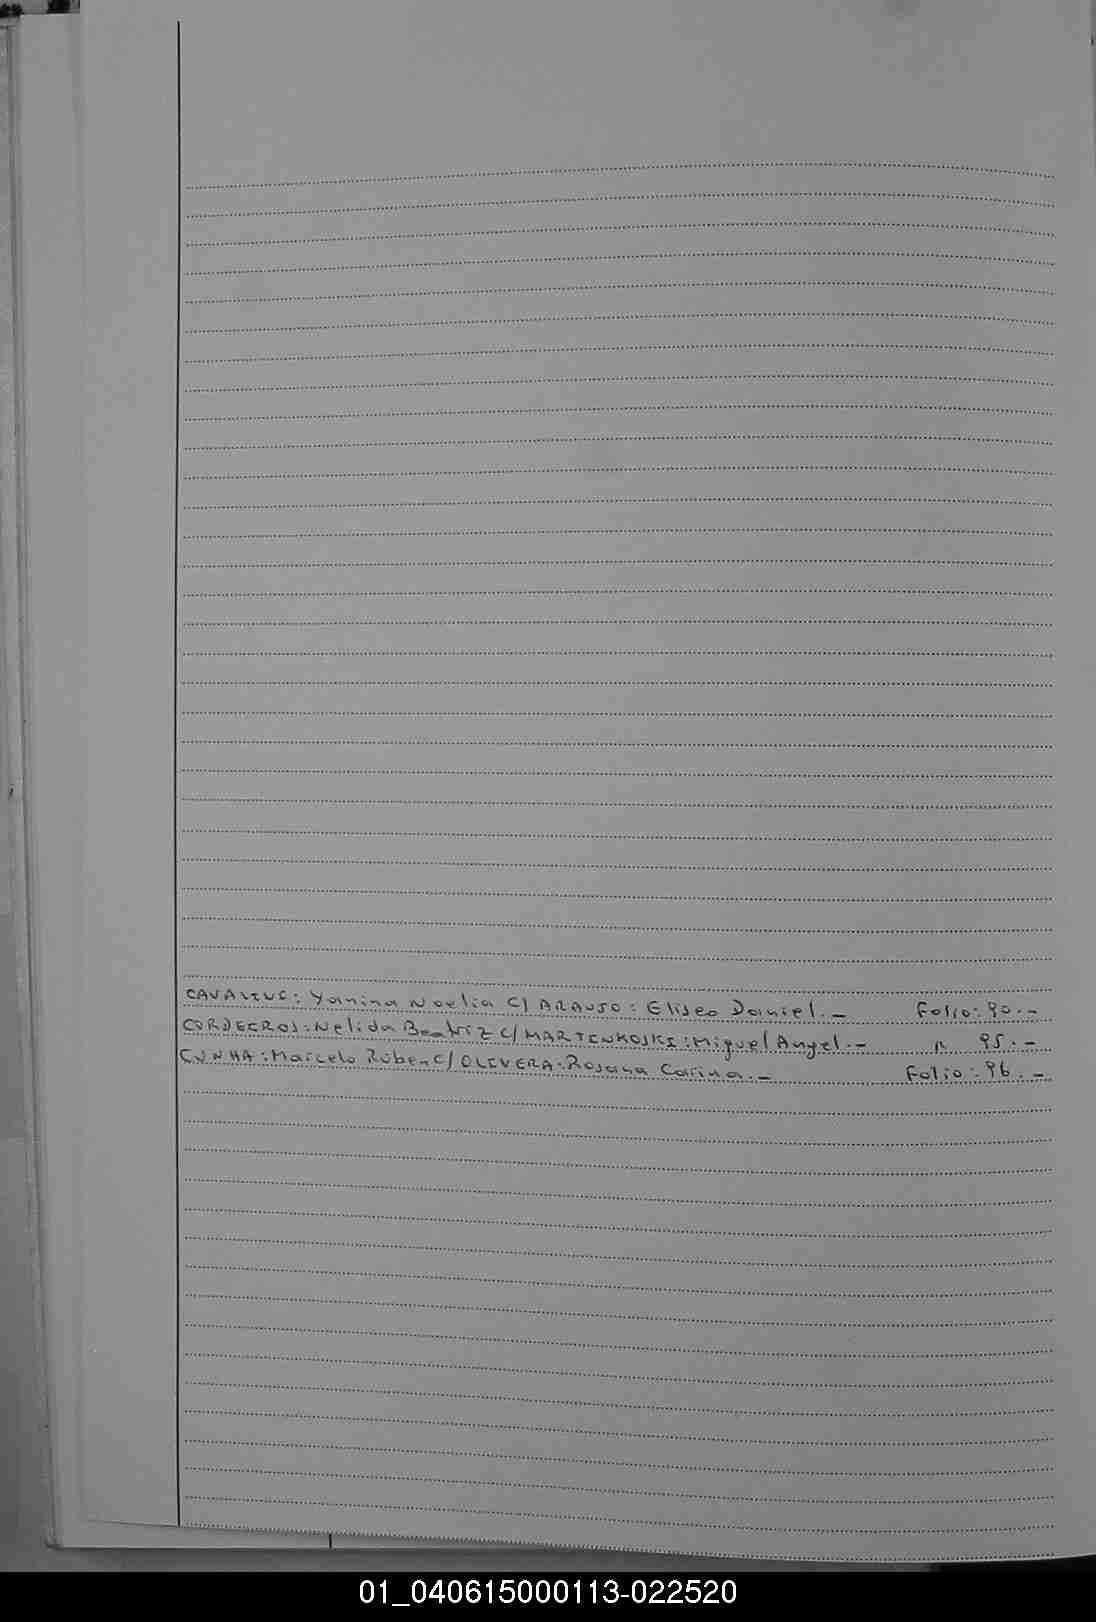 CAVALIUS: Yanina Noelia C/ ARAUJO: Eliseo Daniel.- Folio: 90.-
CORDEEROS: Nelida Beatriz C/ MARTENKOSKI: Miguel Angel.- " 95.-
CUNHA: Marcelo Ruben C/ OLIVERA: Rosana Carina.- Folio: 96.-
01_040615000113-022520